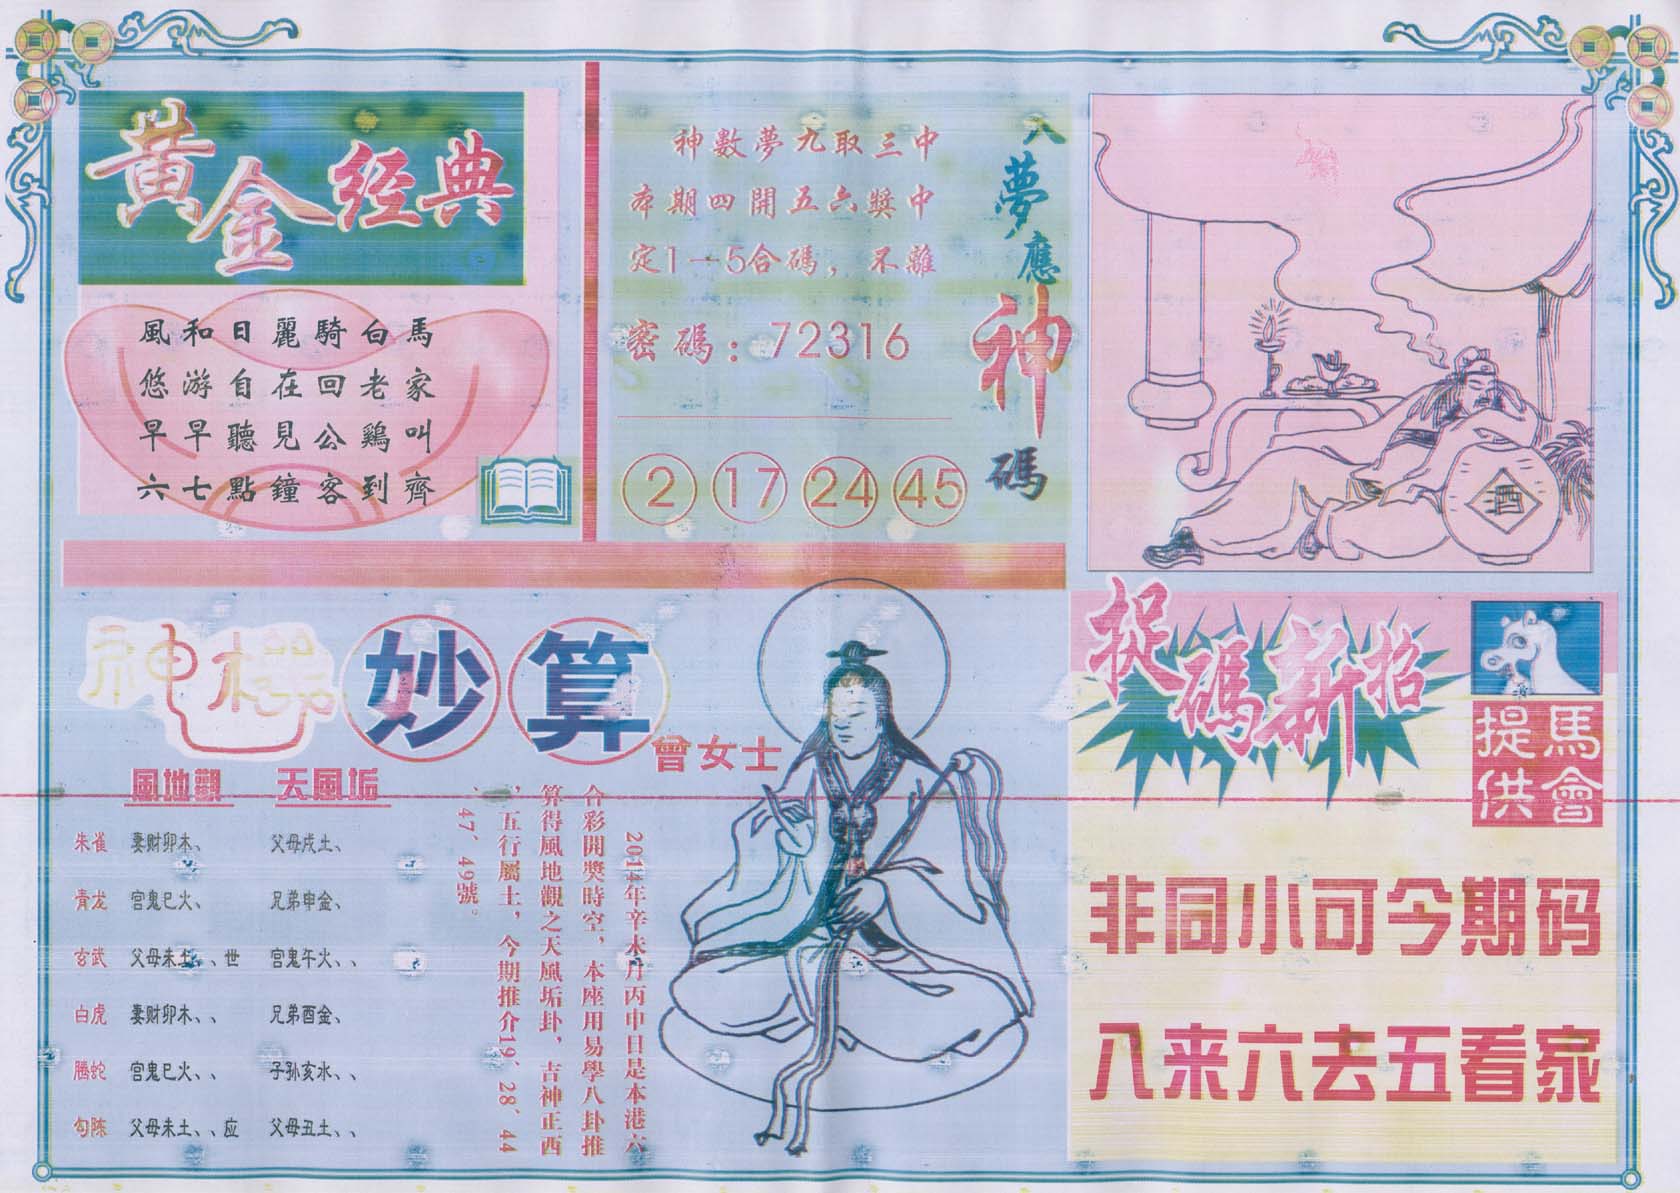 黄金经典
風和日麗騎白馬
悠游自在回老家
早早聽見公鷄叫
六七點鐘客到齊
神數夢九取三中
本期四開五六獎中
定1一5合碼，不離
密碼：72316
2 17 24 45
八夢應神碼
酒
神機妙算
曾女士
風地觀 天風垢
朱雀 妻财卯木、 父母戌土、
青龙 官鬼巳火、 兄弟申金、
玄武 父母未土、、世 官鬼午火、、
白虎 妻财卯木、、 兄弟酉金、
腾蛇 官鬼巳火、、 子孙亥水、、
勾陈 父母未土、、应 父母丑土、、
2014年辛未月丙申日是本港六
合彩開獎時空，本座用易學八卦推
算得風地觀之天風垢卦，吉神正西
，五行屬土，今期推介19、28、44
、47、49號。
捉碼新招
馬會
提供
非同小可今期码
八来六去五看家